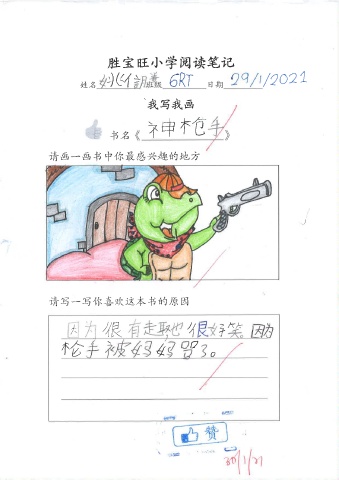 胜宝旺小学阅读笔记
姓名 班级 6RT 日期 29/1/2021
我写我画
书名《神枪手》
请画一画书中你最感兴趣的地方
请写一写你喜欢这本书的原因
因为很有走耶也很好笑。因为
枪手被妈妈骂了。
赞
30/1/21